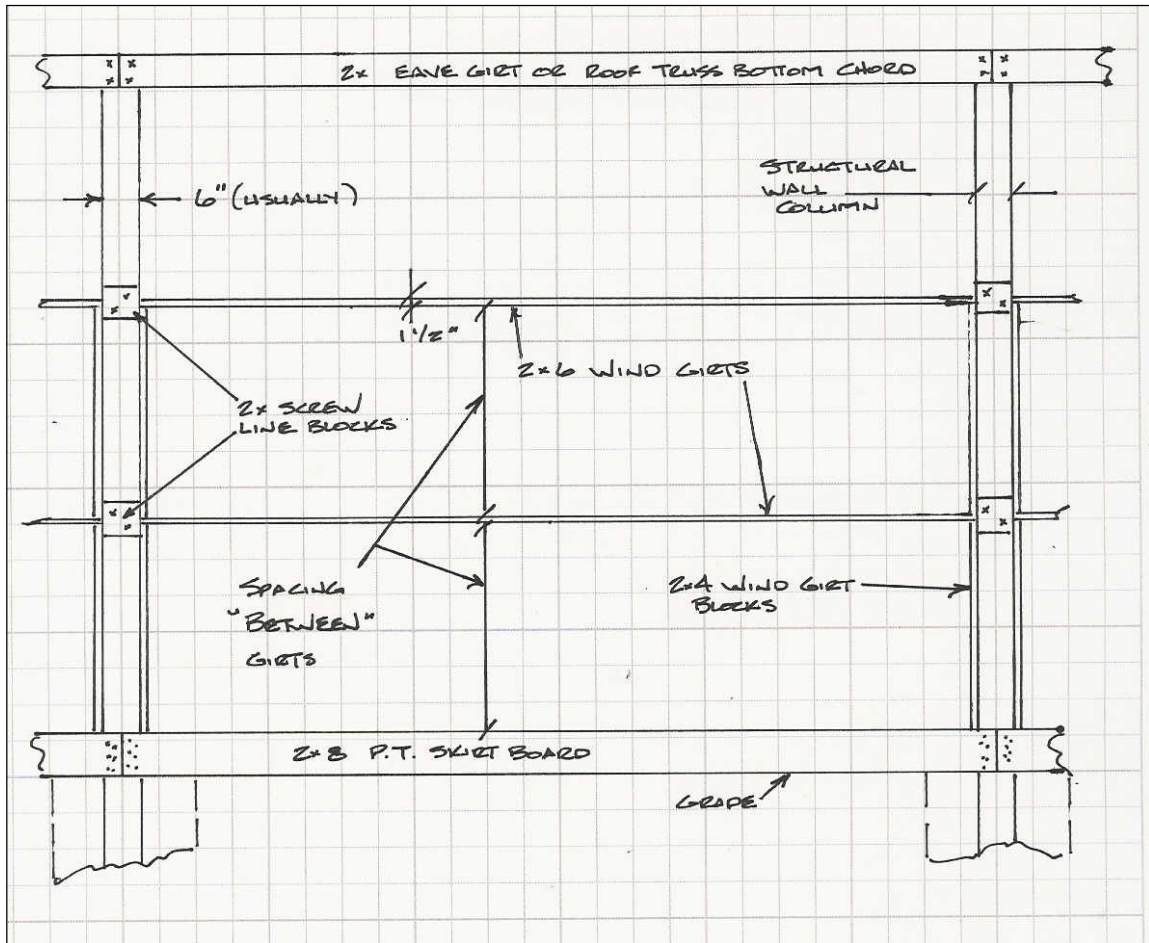 2x EAVE GIRT OR ROOF TRUSS BOTTOM CHORD
6" (USUALLY)
STRUCTURAL
WALL
COLUMN
1 1/2"
2x6 WIND GIRTS
2x SCREW
LINE BLOCKS
SPACING
"BETWEEN"
GIRTS
2x4 WIND GIRT
BLOCKS
2x8 P.T. SKIRT BOARD
GRADE